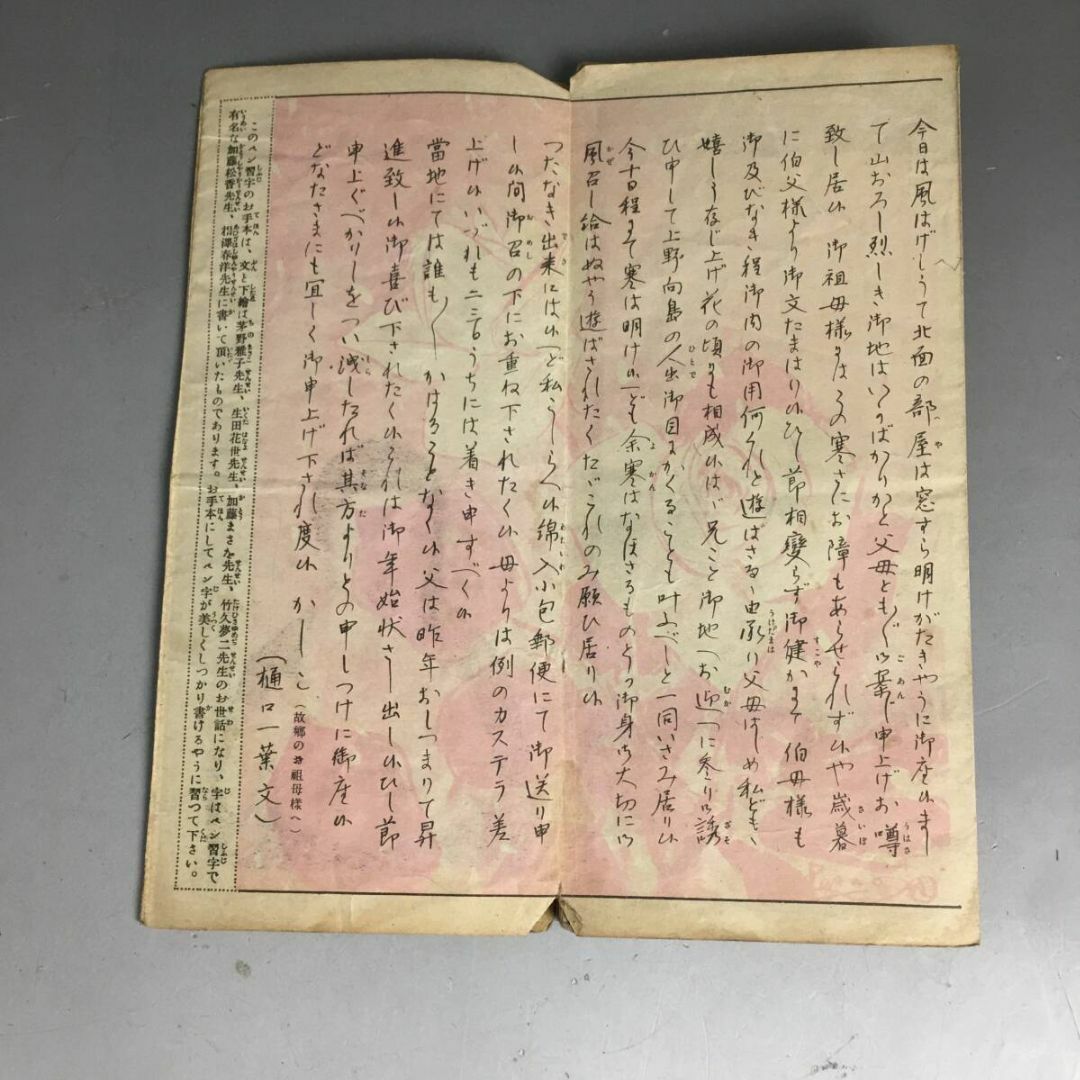 今日は風はげしうて北面の部屋は窓すら明けがたきやうに御座候まゝ
て山おろし烈しき御地はいかばかりかと父母ともども御案じ申上げお噂
致し居候 御祖母様には此寒さにお障もあらせられず候や歳暮
に伯父様より御文たまはり候ひし節相變らず御健かにて 伯母様も
御及びなき程御内の御用何くれと遊ばさるゝ由承り父母はじめ私ども
嬉しう存じ上げ花の頃にも相成候はゞ兄こと御地へお迎へに参り御誘
ひ申して上野向島の人出御目にかくることも叶ふべしと一同いさみ居り候
今十日程にて寒は明け候へども余寒はなほさるものどうぞ御身御大切に御
風召し給はぬやう遊ばされたくたゞこれのみ願ひ居り候
つたなき出来には候へど私うしらへ候綿入小包郵便にて御送り申
し候間御召の下にお重ね下されたく候 母よりは例のカステラ差
上げ候いづれも二三日うちには着き申すべく候
當地にては誰も〱かはることなく候父は昨年おしつまりて昇
進致し候御喜び下されたく候これは御年始状さし出し候ひし節
申上ぐべかりしをつい洩したれば其方よりとの申しつけに御座候
どなたさまにも宜しく御申上げ下され度候 かしこ（故郷のお祖母様へ）
（樋口一葉文）
このペン習字のお手本は、文と下繪は茅野雅子先生、生田花世先生、加藤まさを先生、竹久夢二先生のお世話になり、字はペン習字で
有名な加藤松香先生、相澤春洋先生に書いて頂いたものであります。お手本にしてペン字が美しくしつかり書けるやうに習つて下さい。